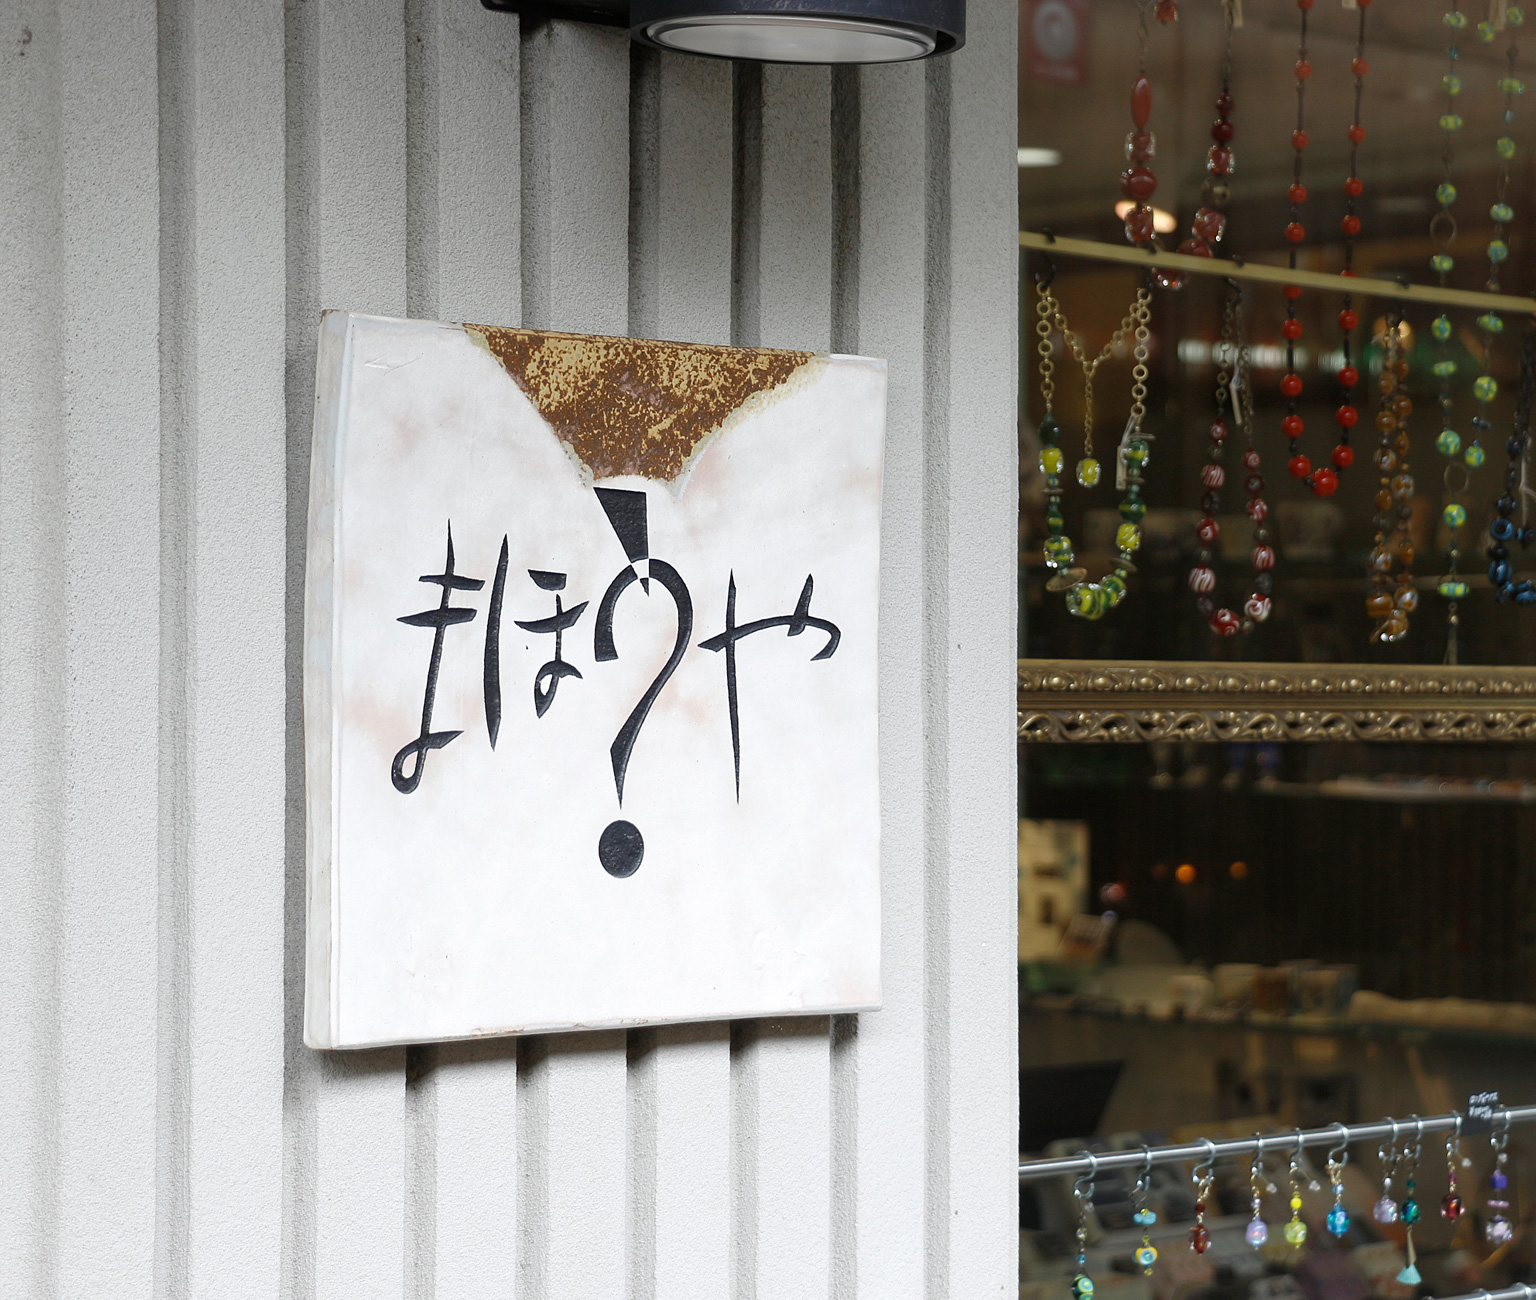 まほうや